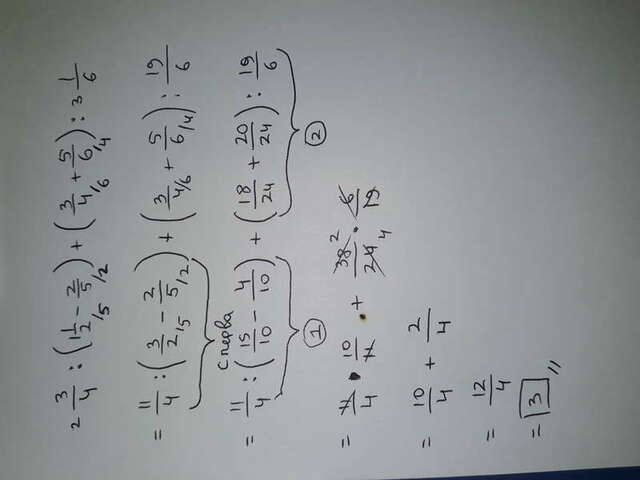 2 3/4 : (1 1/2 /5 − 2/5 /2) + (3/4 /6 + 5/6 /4) : 3 1/6
= 11/4 : (3/2 /5 − 2/5 /2) + (3/4 /6 + 5/6 /4) : 19/6
сперва
= 11/4 : (15/10 − 4/10) + (18/24 + 20/24) : 19/6
1 2
= 11/4 · 10/11 + 38 2/24 4 · 6/19
= 10/4 + 2/4
= 12/4
= 3 //